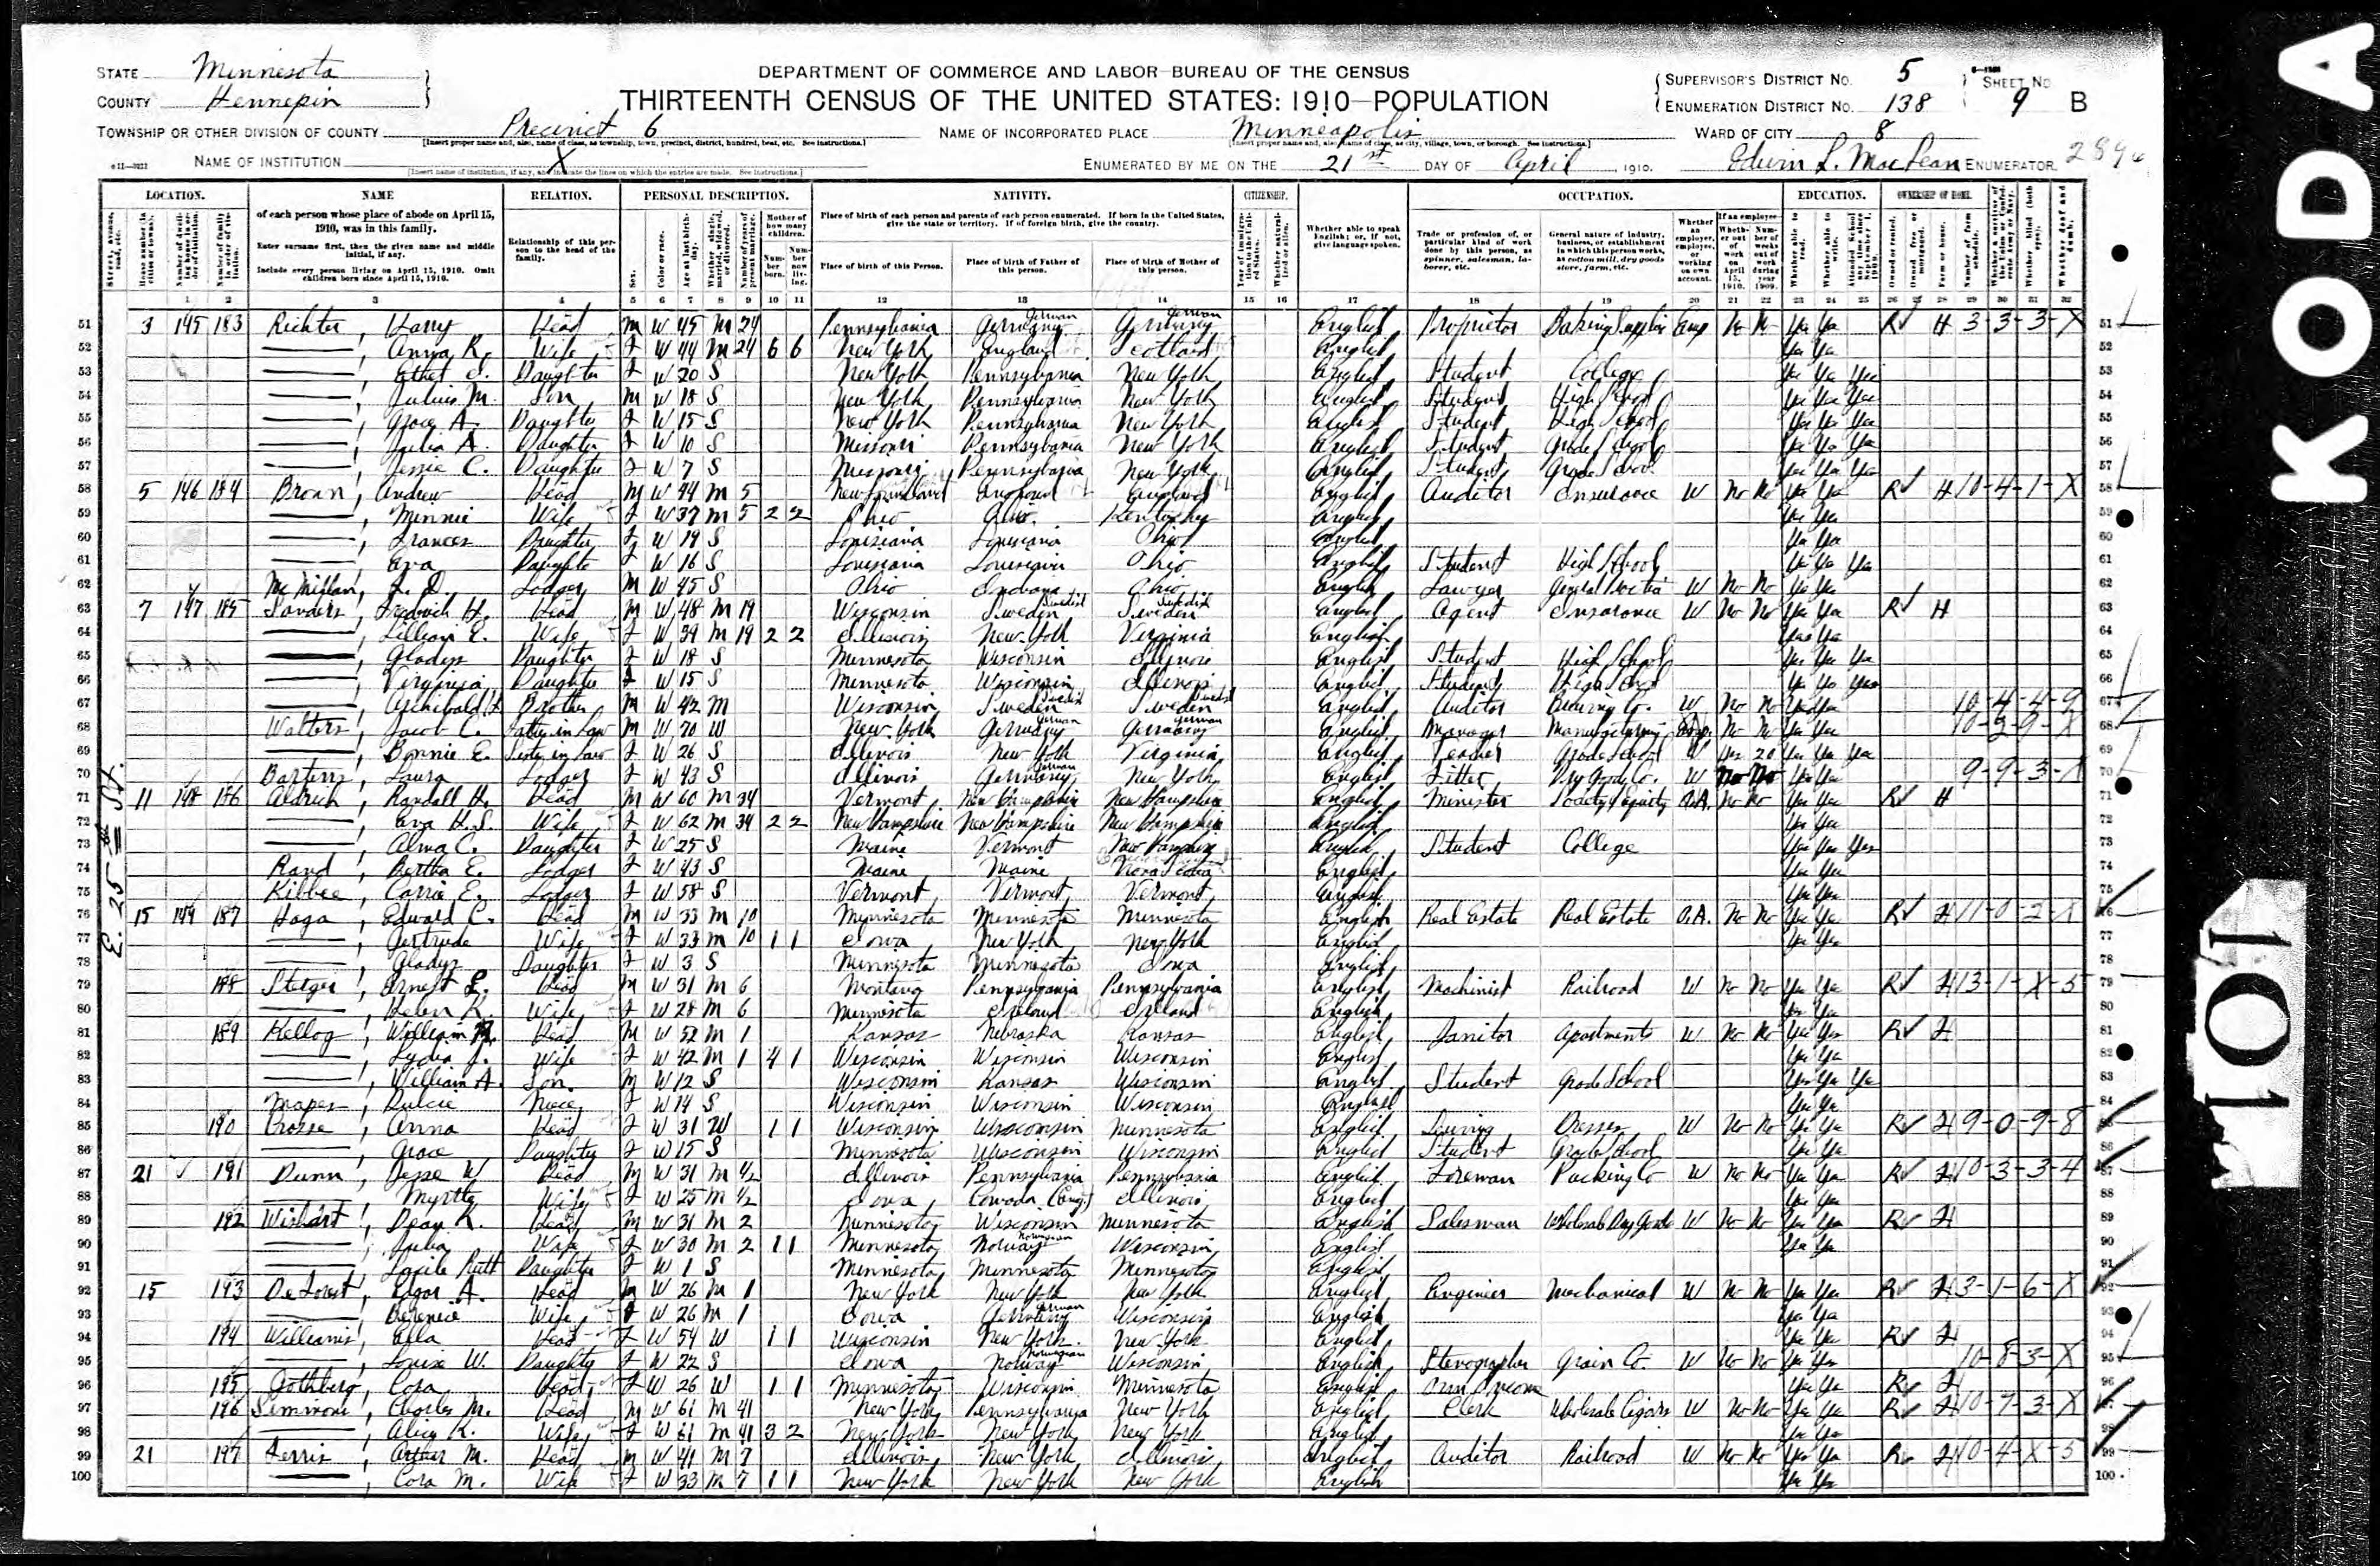 STATE Minnesota
COUNTY Hennepin
DEPARTMENT OF COMMERCE AND LABOR—BUREAU OF THE CENSUS
THIRTEENTH CENSUS OF THE UNITED STATES: 1910—POPULATION
SUPERVISOR'S DISTRICT NO. 5
ENUMERATION DISTRICT NO. 138
SHEET NO. 9 B
TOWNSHIP OR OTHER DIVISION OF COUNTY Precinct 6
NAME OF INCORPORATED PLACE Minneapolis
WARD OF CITY 8
NAME OF INSTITUTION X
ENUMERATED BY ME ON THE 21st DAY OF April, 1910. Edwin L. MacLean ENUMERATOR.
LOCATION. NAME RELATION. PERSONAL DESCRIPTION. NATIVITY. CITIZENSHIP. OCCUPATION. EDUCATION. OWNERSHIP OF HOME.
of each person whose place of abode on April 15, 1910, was in this family.
Enter surname first, then the given name and middle initial, if any.
Include every person living on April 15, 1910. Omit children born since April 15, 1910.
Relationship of this person to the head of the family.
Place of birth of each person and parents of each person enumerated. If born in the United States, give the state or territory. If of foreign birth, give the country.
Place of birth of this Person. Place of birth of Father of this person. Place of birth of Mother of this person.
Whether able to speak English; or, if not, give language spoken.
Trade or profession of, or particular kind of work done by this person, as spinner, salesman, laborer, etc.
General nature of industry, business, or establishment in which this person works, as cotton mill, dry goods store, farm, etc.
1 2 3 4 5 6 7 8 9 10 11 12 13 14 15 16 17 18 19 20 21 22 23 24 25 26 27 28 29 30 31 32
E. 25th St.
51 3 145 183 Richter, Harry Head M W 45 M 24 Pennsylvania Germany German Germany German English Proprietor Baking Supplies Emp No No Yes Yes R H 3-3-3-X
52 Anna R. Wife F W 44 M 24 6 6 New York England Scotland English Yes Yes
53 Ethel Daughter F W 20 S New York Pennsylvania New York English Student College Yes Yes Yes
54 Julius M. Son M W 18 S New York Pennsylvania New York English Student High School Yes Yes Yes
55 Grace A. Daughter F W 15 S New York Pennsylvania New York English Student High School Yes Yes Yes
56 A. Daughter F W 10 S Missouri Pennsylvania New York English Student Grade School Yes Yes Yes
57 Jessie C. Daughter F W 7 S Missouri Pennsylvania New York English Student Grade School Yes Yes Yes
58 5 146 184 Andrew Head M W 44 M 5 Newfoundland England England English Auditor Insurance W No No Yes Yes R H 10-4-1-X
59 Minnie Wife F W 37 M 5 2 2 Ohio Ohio Kentucky English Yes Yes
60 Frances Daughter F W 19 S Louisiana Louisiana Ohio English Yes Yes
61 Eva Daughter F W 16 S Louisiana Louisiana Ohio English Student High School Yes Yes Yes
62 McMillan Lodger M W 45 S Ohio Indiana Ohio English Lawyer General Practice W No No Yes Yes
63 7 147 185 Sanders, Fredrick H. Head M W 48 M 19 Wisconsin Sweden Swedish Sweden Swedish English Agent Insurance W No No Yes Yes R H
64 Lillian E. Wife F W 39 M 19 2 2 Illinois New York Virginia English Yes Yes
65 Gladys Daughter F W 18 S Minnesota Wisconsin Illinois English Student High School Yes Yes Yes
66 Virginia Daughter F W 15 S Minnesota Wisconsin Illinois English Student High School Yes Yes Yes
67 Archibald Brother M W 42 M Wisconsin Sweden Swedish Sweden Swedish English Auditor Co. W No No Yes Yes 10-4-4-9
68 Walters, Jacob C. Father in Law M W 70 W New York Germany German Germany German English Manager Manufacturing No No Yes Yes
69 Bonnie E. Sister in Law F W 26 S Illinois New York Virginia English Teacher Grade School W Yes 20 Yes Yes Yes
70 Laura Lodger F W 43 S Illinois Germany German New York English Fitter Dry Goods Co. W No No Yes Yes 9-9-3-X
71 11 148 186 Aldrich, Randall H. Head M W 60 M 34 Vermont New Hampshire New Hampshire English Minister O.A. No No Yes Yes R H
72 Eva H.S. Wife F W 62 M 34 2 2 New Hampshire New Hampshire New Hampshire English Yes Yes
73 Alma C. Daughter F W 25 S Maine Vermont New Hampshire English Student College Yes Yes Yes
74 Rand, Bertha E. Lodger F W 43 S Maine Maine Nova Scotia English Yes Yes
75 Kibbee, Carrie E. Lodger F W 58 S Vermont Vermont Vermont English Yes Yes
76 15 149 187 Haga, Edward C. Head M W 33 M 10 Minnesota Minnesota Minnesota English Real Estate Real Estate O.A. No No Yes Yes R 11-0-2-X
77 Gertrude Wife F W 33 M 10 1 1 Iowa New York New York English Yes Yes
78 Gladys Daughter F W 3 S Minnesota Minnesota Iowa English
79 188 Steiger, Ernest L. Head M W 31 M 6 Montana Pennsylvania Pennsylvania English Machinist Railroad W No No Yes Yes R 13-1-X-5
80 Helen R. Wife F W 28 M 6 Minnesota Ireland Ireland English Yes Yes
81 189 Kellog, William Head M W 52 M 1 Kansas Nebraska Kansas English Janitor Apartments W No No Yes Yes R
82 Lydia J. Wife F W 42 M 1 4 1 Wisconsin Wisconsin Wisconsin English Yes Yes
83 William A. Son M W 12 S Wisconsin Kansas Wisconsin English Student Grade School Yes Yes Yes
84 Mapes, Dulcie Niece F W 14 S Wisconsin Wisconsin Wisconsin English Yes Yes
85 190 Crosse, Anna Head F W 31 W 1 1 Wisconsin Wisconsin Minnesota English Sewing Dresses W No No Yes Yes R 9-0-9-8
86 Grace Daughter F W 15 S Minnesota Wisconsin Wisconsin English Student Grade School Yes Yes
87 21 191 Dunn, Jesse W Head M W 31 M ½ Illinois Pennsylvania Pennsylvania English Foreman Packing Co W No No Yes Yes R 10-3-3-4
88 Myrtle Wife F W 25 M ½ Iowa Canada (Eng) Illinois English Yes Yes
89 192 Wishart, Dean K. Head M W 31 M 2 Minnesota Wisconsin Minnesota English Salesman Wholesale Dry Goods W No No Yes Yes R
90 Julia Wife F W 30 M 2 1 1 Minnesota Norway Norwegian Wisconsin English Yes Yes
91 Lucile Ruth Daughter F W 1 S Minnesota Minnesota Minnesota English
92 15 193 DeForest, Edgar A. Head M W 26 M 1 New York New York New York English Engineer Mechanical W No No Yes Yes R 3-1-6-X
93 Berenice Wife F W 26 M 1 Iowa Germany German Wisconsin English Yes Yes
94 194 Williams, Ella Head F W 54 W 1 1 Wisconsin New York New York English Yes Yes R
95 Louise W. Daughter F W 22 S Iowa Norway Norwegian Wisconsin English Stenographer Grain Co. W No No Yes Yes 10-8-3-X
96 195 Gothberg, Cora Head F W 26 W 1 1 Minnesota Wisconsin Minnesota English Own Income Yes Yes R
97 196 Simmons, Charles M. Head M W 61 M 41 New York Pennsylvania New York English Clerk Wholesale Cigars W No No Yes Yes R 10-7-3-X
98 Alice K. Wife F W 61 M 41 3 2 New York New York New York English Yes Yes
99 21 197 Ferris, Arthur M. Head M W 41 M 7 Illinois New York Illinois English Auditor Railroad W No No Yes Yes R 10-4-X-5
100 Cora M. Wife F W 33 M 7 1 1 New York New York New York English Yes Yes
KODA
101